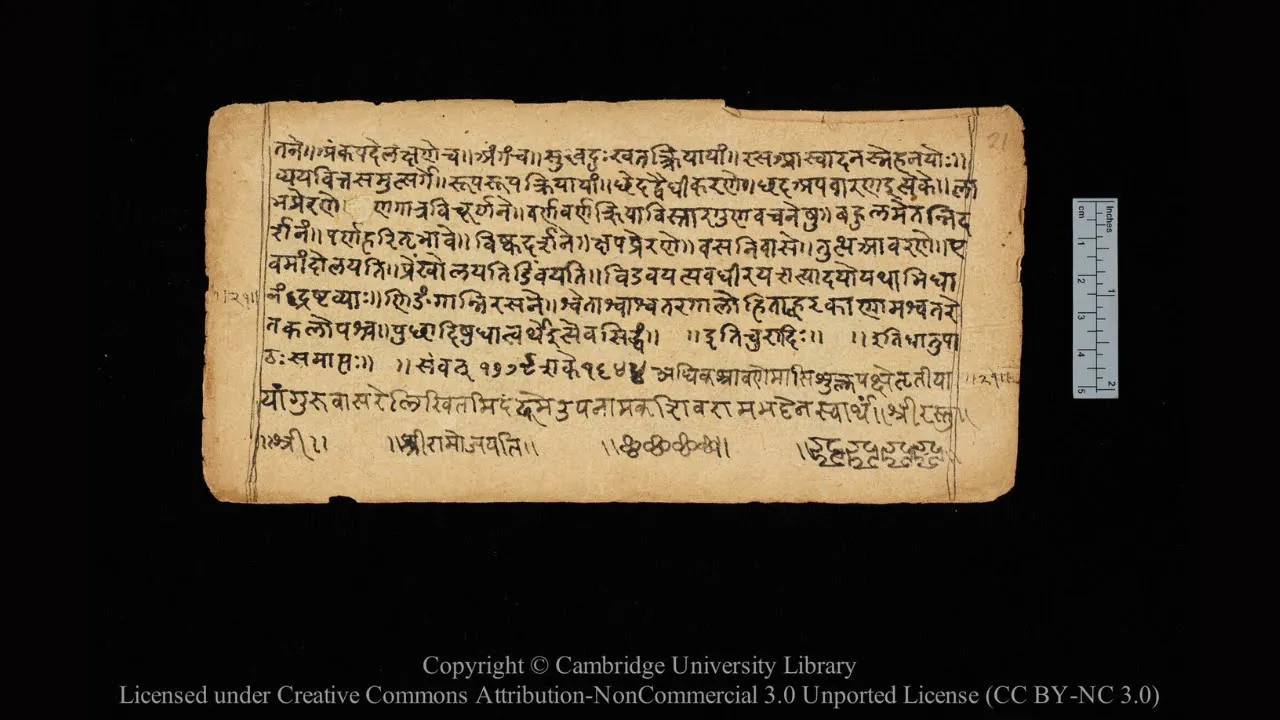 तने॥अंक पदे लक्षणे च॥अंग च॥सुख दुःख तत्क्रियायां॥रस आस्वादनस्नेहनयोः॥
व्यय वित्तसमुत्सर्गे॥रूप रूपक्रियायां॥छेद द्वैधीकरणे॥छद अपवारण इत्येके॥ला
भ प्रेरणे॥ व्रण गात्रविचूर्णने॥वर्ण वर्णक्रियाविस्तारगुणवचनेषु॥बहुलमेतन्निद
र्शनं॥पर्ण हरितभावे॥विष्क दर्शने॥क्षप प्रेरणे॥वस निवासे॥तुत्थ आवरणे॥ए
वमांदोलयति॥प्रेंखोलयति
नं द्रष्टव्याः॥णिङंगान्निरसने॥श्वेताश्वाश्वतरगालोडिताह्वरकाणामश्वतरे
तकलोपश्च॥पुच्छादिषु धात्वर्थ इत्येव सिद्धं॥ ॥इति चुरादिः॥ ॥इति धातुपा
ठः समाप्तः॥ ॥संवत् १७७९ शके १६४४ अधिकश्रावणे मासि शुक्लपक्षे तृतीया
यां गुरुवासरे लिखितमिदं उपनामक स्वार्थं॥श्रीरस्तु॥
॥श्री॥ ॥श्रीरामो जयति॥
॥२१॥
॥२१॥
21
cm
Inches
1
2
3
4
5
1
2
Copyright © Cambridge University Library
Licensed under Creative Commons Attribution-NonCommercial 3.0 Unported License (CC BY-NC 3.0)